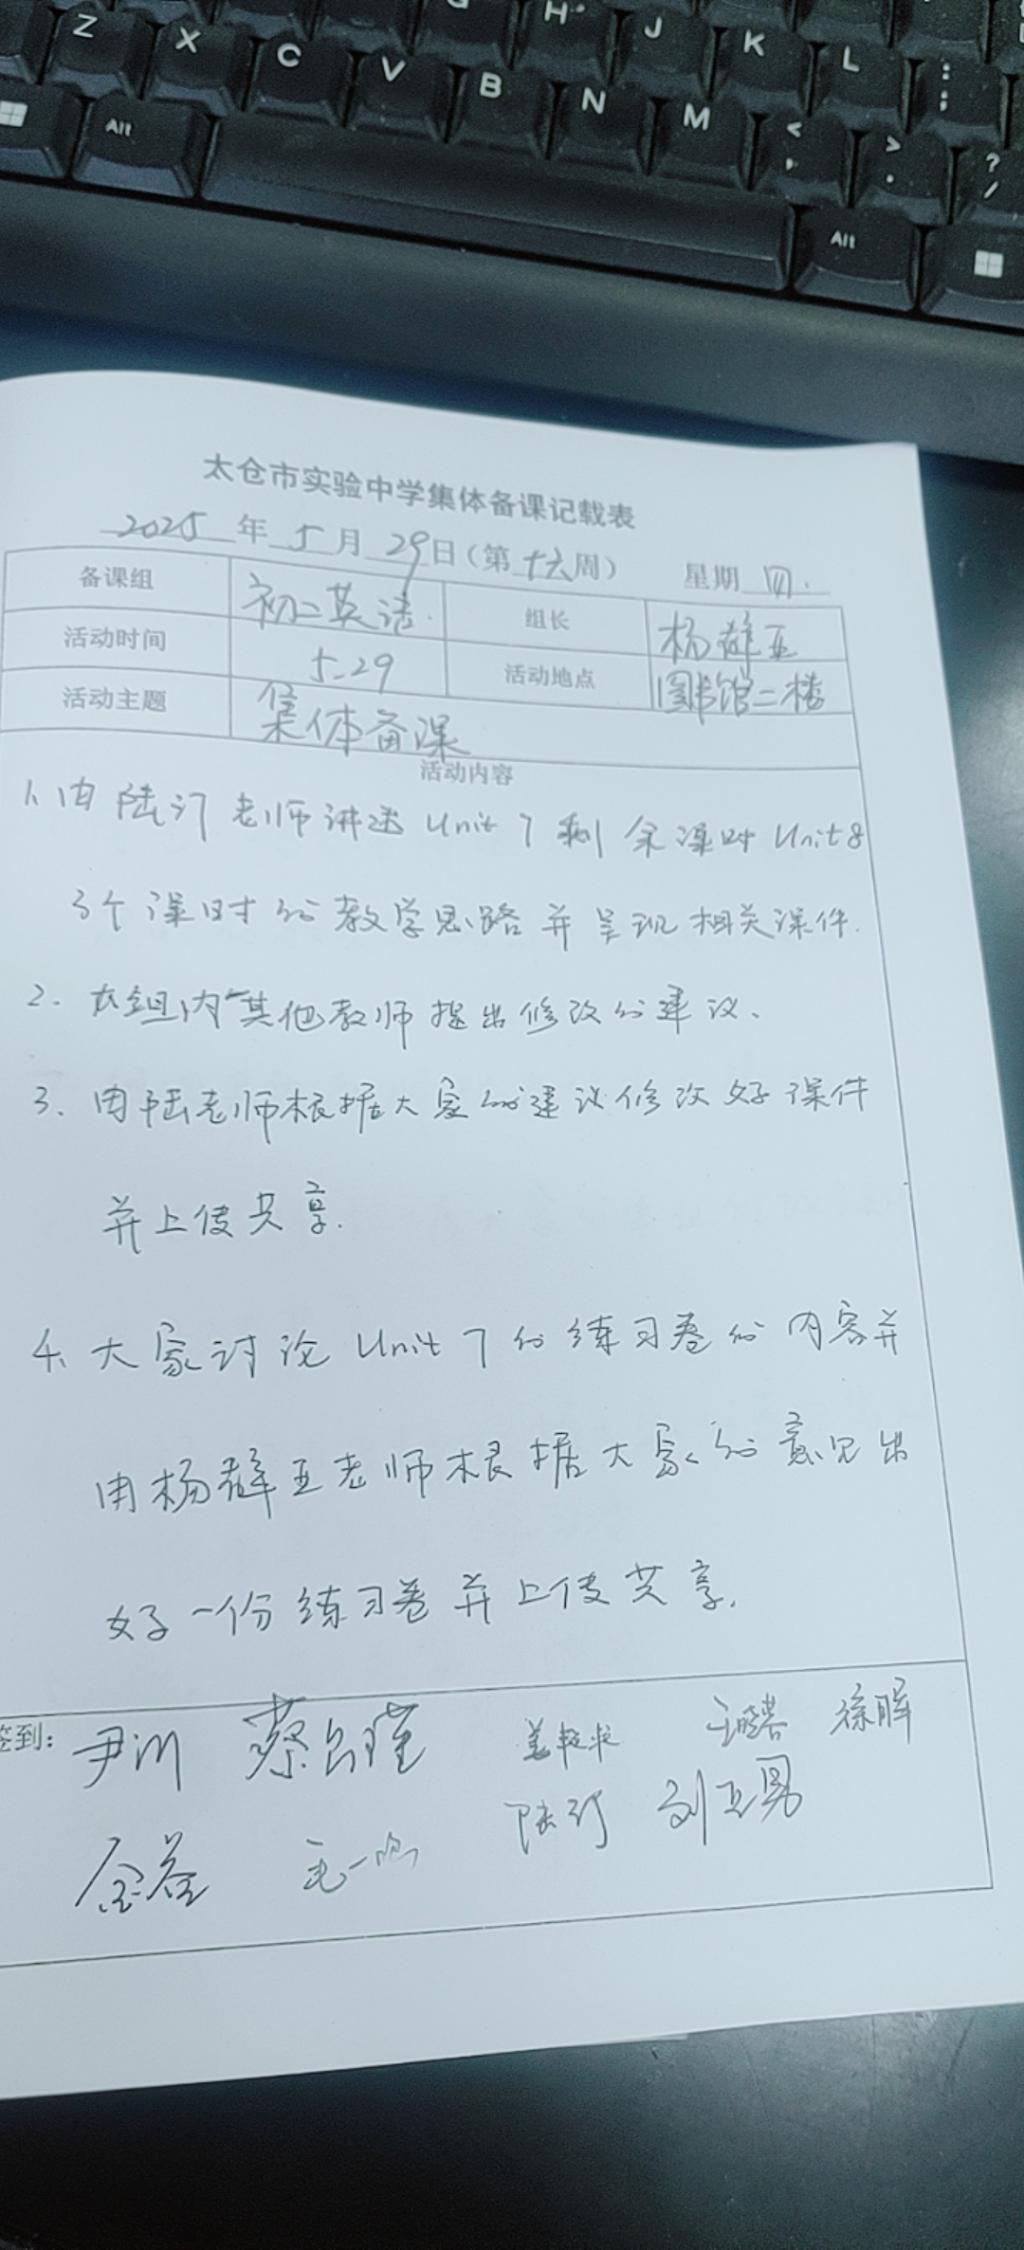 G H J K L
Z X C V B N M < >
Alt Alt ? /
太仓市实验中学集体备课记载表
2025 年 5 月 29 日（第 十六 周） 星期 四.
备课组 初二英语. 组长 杨群亚
活动时间 5.29 活动地点 图书馆二楼
活动主题 集体备课
活动内容
1. 由陆订老师讲述 Unit 7 剩余课时 Unit 8
3个课时的教学思路并呈现相关课件.
2. 在组内其他教师提出修改的建议.
3. 由陆老师根据大家的建议修改好课件
并上传共享.
4. 大家讨论 Unit 7 的练习卷的内容并
由杨群亚老师根据大家的意见出
好一份练习卷并上传共享.
签到: 尹川 徐晖
陆订 刘亚男
毛一鸣